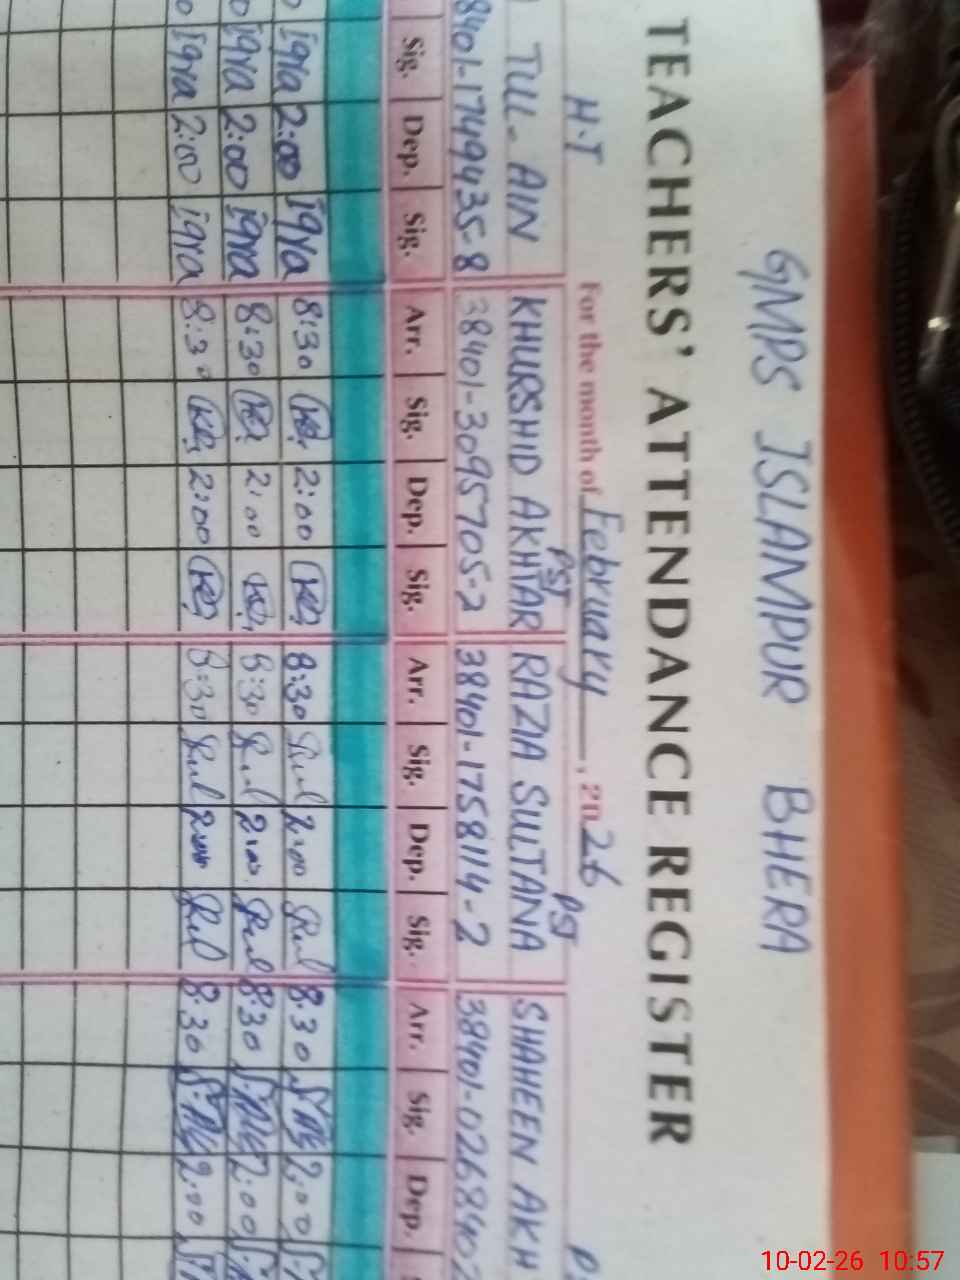 GMPS ISLAMPUR BHERA
TEACHERS' ATTENDANCE REGISTER
H.T For the month of February, 2026
PST PST
TUL-AIN KHURSHID AKHTAR RAZIA SULTANA SHAHEEN AKH
8401-1749435-8 38401-3095705-2 38401-1758114-2 38401-0268402
Sig. Dep. Sig. Arr. Sig. Dep. Sig. Arr. Sig. Dep. Sig. Arr. Sig. Dep.
iqra 2:00 iqra 8:30 2:00 8:30 2:00 8:30 2:00
iqra 2:00 iqra 8:30 2:00 8:30 2:00 8:30 2:00
iqra 2:00 iqra 8:30 2:00 8:30 2:00 8:30 2:00
10-02-26 10:57